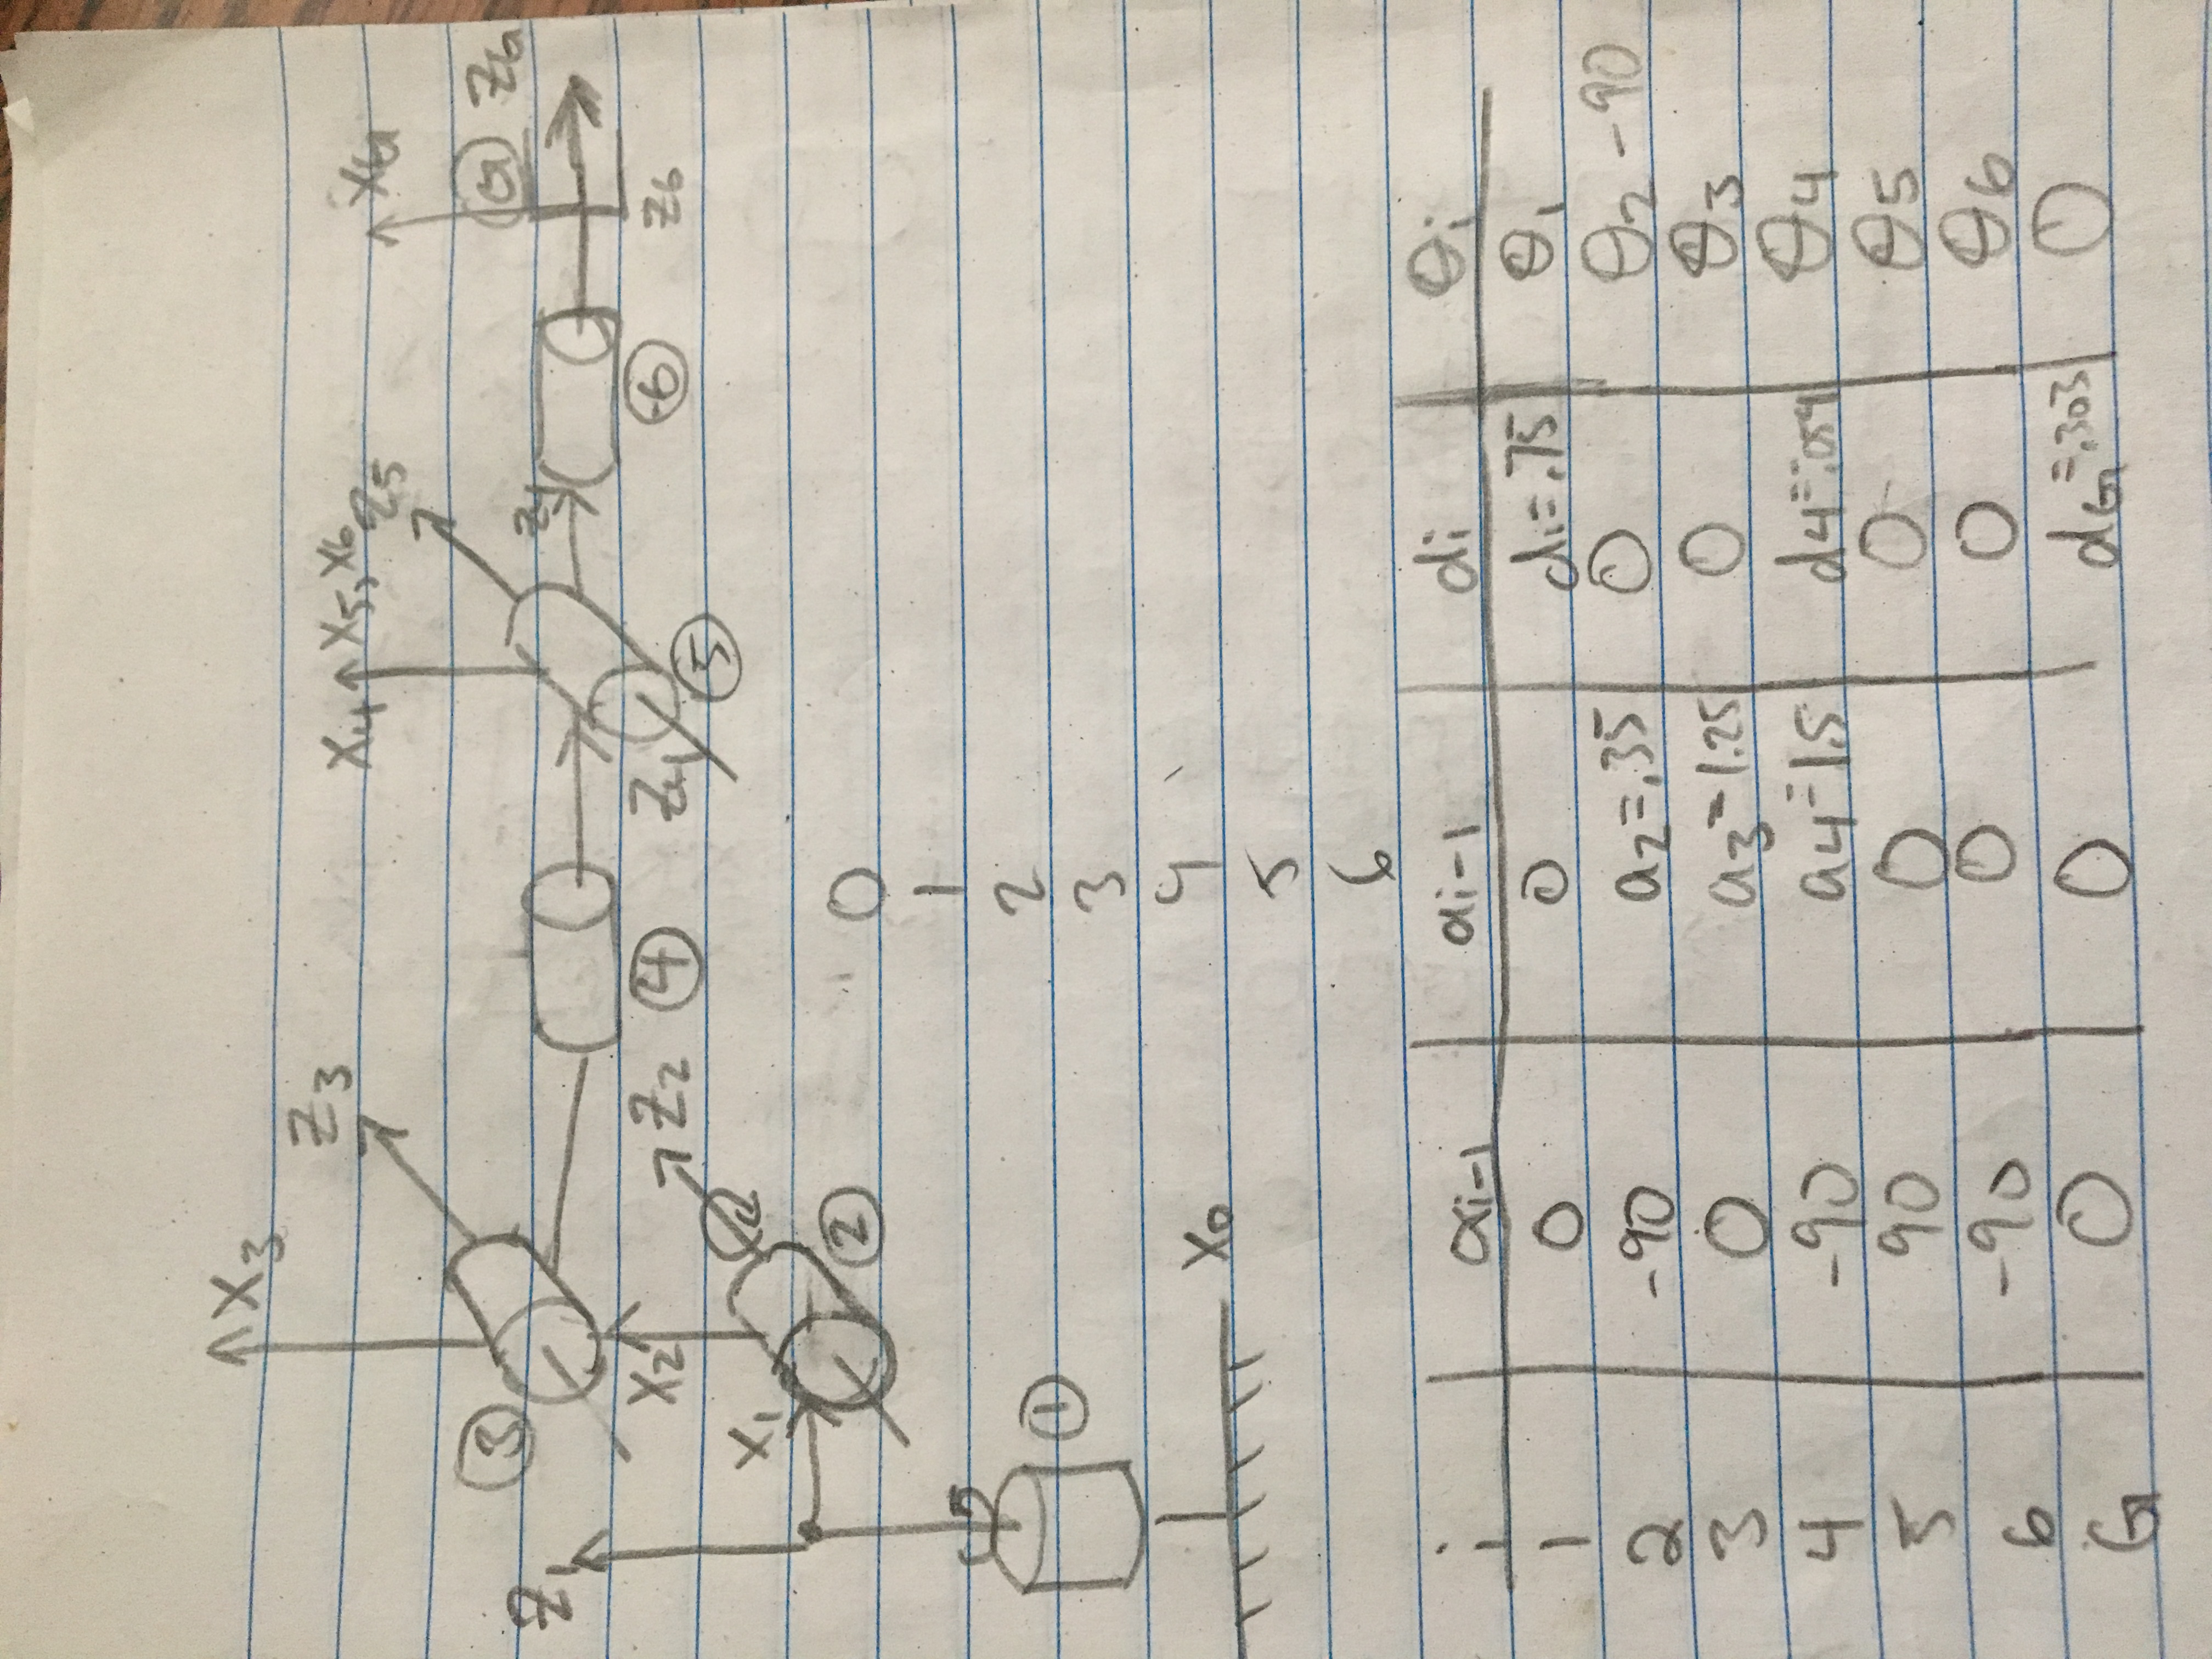 X3
Z3
X4 X5, X6 Z5 XG
3 G ZG
Z1
Z4
X2 Z2 4 Z4 5 6 Z6
X1
2
0
1
2
1 3
4
X0
5
6
i αi-1 ai-1 di θi
1 0 0 d1=.75 θ1
2 -90 a2=.35 0 θ2 -90
3 0 a3=1.25 0 θ3
4 -90 a4=1.5 d4=-.054 θ4
5 90 0 0 θ5
6 -90 0 0 θ6
G 0 0 dG=.303 0